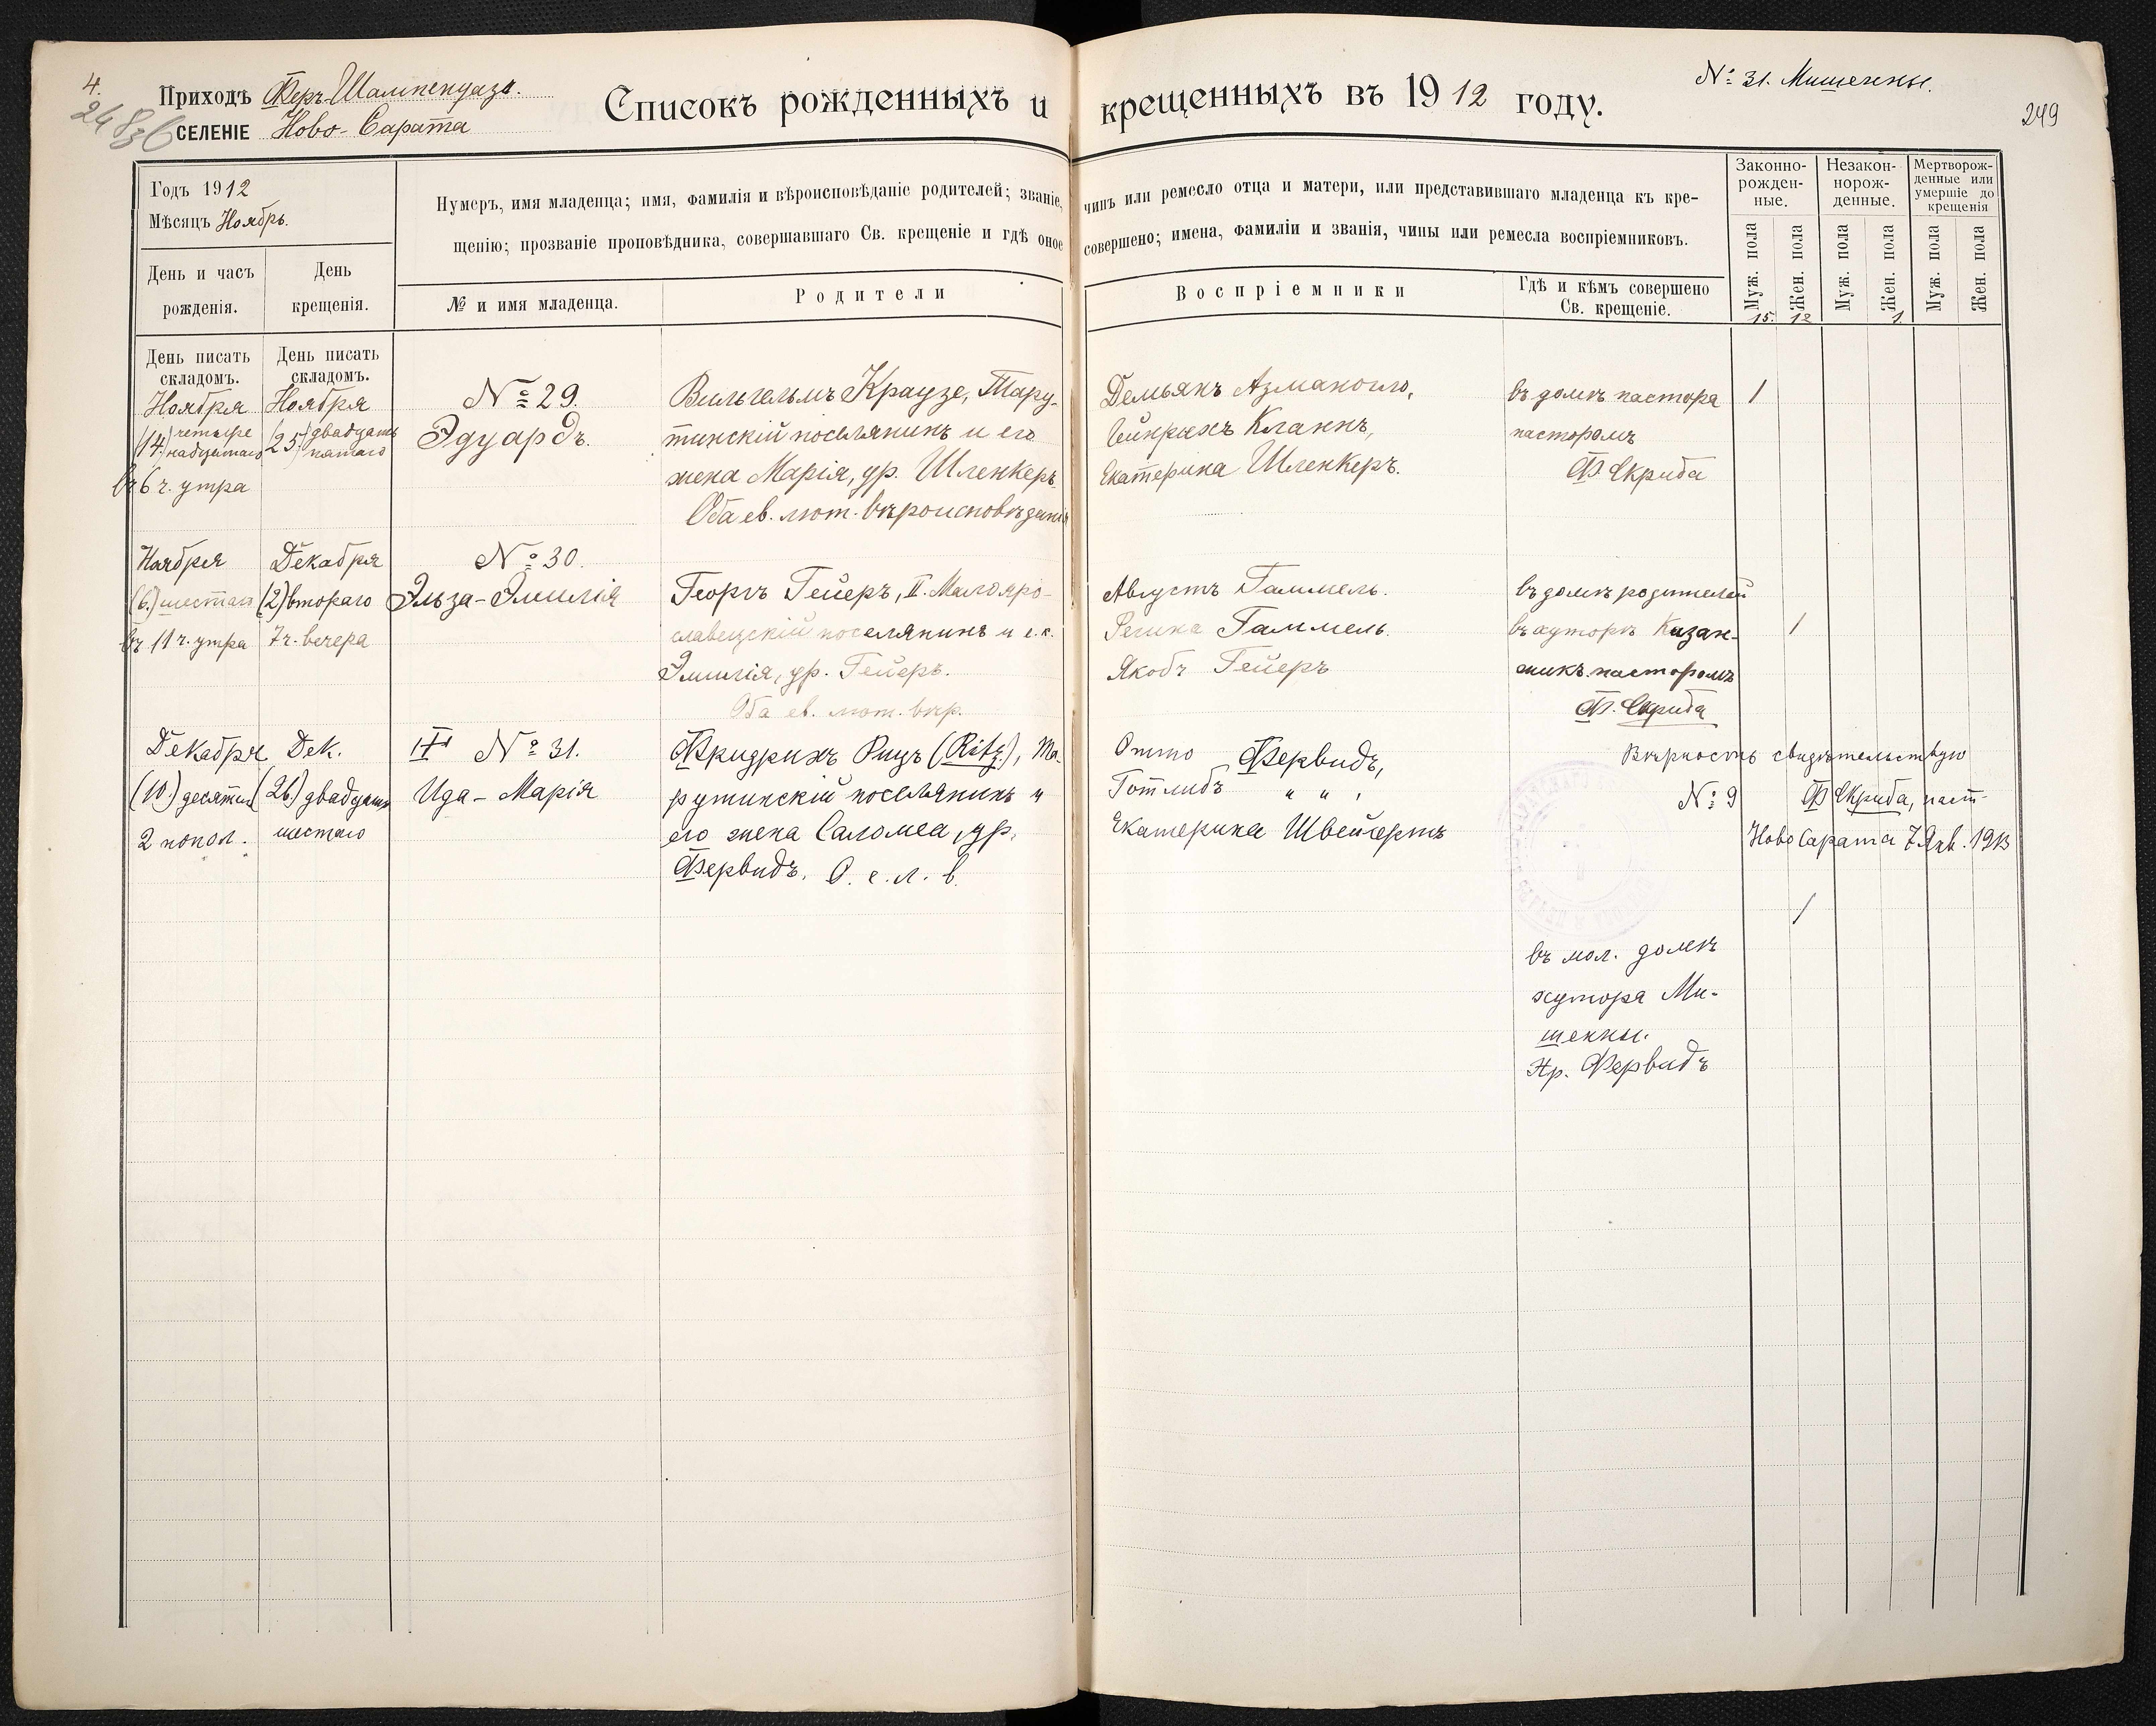 4.
Приходъ Феръ-Шампенуазъ.
СЕЛЕНІЕ Ново-Сарата
Списокъ рожденныхъ и крещенныхъ въ 1912 году.
№ 31. Мишенны.
249
Годъ 1912
Мѣсяцъ Ноябрь.
Нумеръ, имя младенца; имя, фамилія и вѣроисповѣданіе родителей; званіе, чинъ или ремесло отца и матери, или представившаго младенца къ кре-
щенію; прозваніе проповѣдника, совершавшаго Св. крещеніе и гдѣ оное совершено; имена, фамиліи и званія, чины или ремесла воспріемниковъ.
Законно-
рожден-
ные.
Незакон-
норож-
денные.
Мертворож-
денные или
умершіе до
крещенія
День и часъ
рожденія.
День
крещенія.
№ и имя младенца.
Родители
Воспріемники
Гдѣ и кѣмъ совершено
Св. крещеніе.
Муж. пола
Жен. пола
Муж. пола
Жен. пола
Муж. пола
Жен. пола
15. 12 1.
День писать
складомъ.
День писать
складомъ.
Ноября
(14) четыре
надцатаго
въ 6 ч. утра
Ноября
(25) двадцать
пятаго
№ 29.
Эдуардъ.
Вильгельмъ Краузе, Тару-
тинскій поселянинъ и его
жена Марія, ур. Шленкеръ.
Оба ев. лют. вѣроисповѣданія
Демьянъ Азманогло,
Гейнрихъ Кланнъ,
Екатерина Шленкеръ.
въ домѣ пастора
пасторомъ
Ф. Скриба
1
Ноября
(6.) шестаго
въ 11 ч. утра
Декабря
(2) втораго
7 ч. вечера
№ 30.
Эльза-Эмилія
Георгъ Гейеръ, II. Малояро-
славецскій поселянинъ и е. ж.
Эмилія, ур. Гейеръ.
Оба ев. лют. вѣр.
Августъ Гаммель.
Регина Гаммель.
Якобъ Гейеръ
въ домѣ родителей
въ хуторѣ Казан-
жикъ пасторомъ
Ф. Скриба
1
Декабря
(10.) десятаго
2 попол.
Дек.
(26.) двадцать
шестаго
№ 31.
Ида-Марія
Фридрихъ Рицъ (Ritz.), Та-
рутинскій поселянинъ и
его жена Саломеа, ур.
Фервидъ. О. е. л. в.
Отто Фервидъ,
Готлибъ " " ,
Екатерина Швейгертъ
Вѣрность свидѣтельствую
№ 9 Ф Скриба, паст.
Ново Сарата 7 Янв. 1913
1
въ мол. домѣ
хутора Ми-
шенны.
Фервидъ